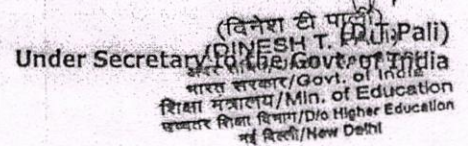 (दिनेश टी पाली)
(DINESH T. PALI)
(D.T. Pali)
Under Secretary to the Govt. of India
भारत सरकार/Govt. of India
शिक्षा मंत्रालय/Min. of Education
उच्चतर शिक्षा विभाग/D/o Higher Education
नई दिल्ली/New Delhi